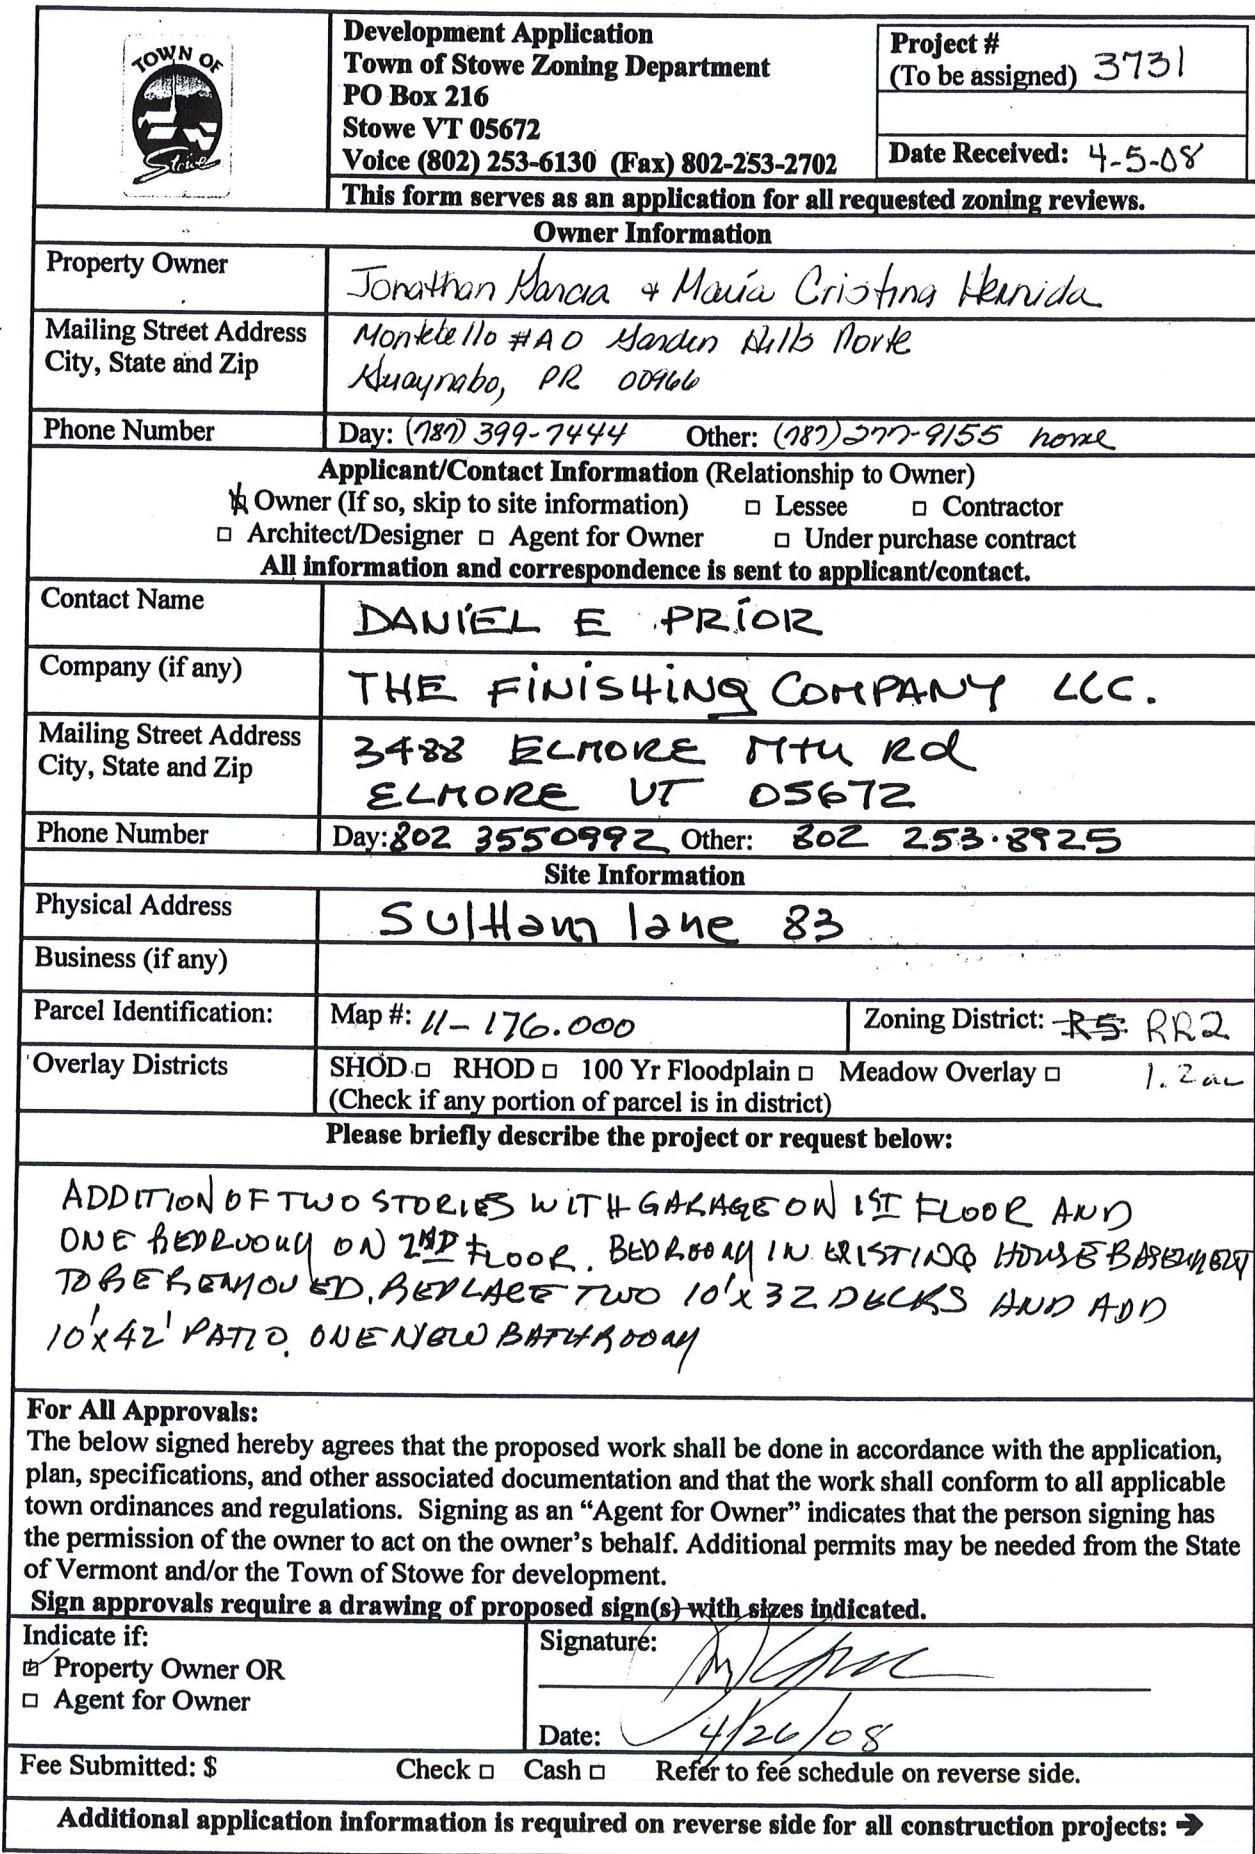 TOWN OF
Stowe
Development Application
Town of Stowe Zoning Department
PO Box 216
Stowe VT 05672
Voice (802) 253-6130 (Fax) 802-253-2702
This form serves as an application for all requested zoning reviews.
Project #
(To be assigned) 3731
Date Received: 4-5-08
Owner Information
Property Owner Jonathan Garcia & María Cristina Hermida
Mailing Street Address Montebello #A0 Garden Hills Norte
City, State and Zip Guaynabo, PR 00966
Phone Number Day: (787) 399-7444 Other: (787) 277-9155 home
Applicant/Contact Information (Relationship to Owner)
Owner (If so, skip to site information) □ Lessee □ Contractor
□ Architect/Designer □ Agent for Owner □ Under purchase contract
All information and correspondence is sent to applicant/contact.
Contact Name DANIEL E PRIOR
Company (if any) THE FINISHING COMPANY LLC.
Mailing Street Address 3488 ELMORE MTN Rd
City, State and Zip ELMORE VT 05672
Phone Number Day: 802 3550992 Other: 802 253.8925
Site Information
Physical Address Sulham lane 83
Business (if any)
Parcel Identification: Map #: 11-176.000 Zoning District: R5 RR2
Overlay Districts SHOD □ RHOD □ 100 Yr Floodplain □ Meadow Overlay □ 1.2 ac
(Check if any portion of parcel is in district)
Please briefly describe the project or request below:
ADDITION OF TWO STORIES WITH GARAGE ON 1ST FLOOR AND
ONE BEDROOM ON 2ND FLOOR. BEDROOM IN EXISTING HOUSE BASEMENT
TO BE REMOVED. REPLACE TWO 10'x32 DECKS AND ADD
10'x42' PATIO. ONE NEW BATHROOM
For All Approvals:
The below signed hereby agrees that the proposed work shall be done in accordance with the application,
plan, specifications, and other associated documentation and that the work shall conform to all applicable
town ordinances and regulations. Signing as an “Agent for Owner” indicates that the person signing has
the permission of the owner to act on the owner’s behalf. Additional permits may be needed from the State
of Vermont and/or the Town of Stowe for development.
Sign approvals require a drawing of proposed sign(s) with sizes indicated.
Indicate if:
Property Owner OR
□ Agent for Owner
Signature:
Date: 4/26/08
Fee Submitted: $ Check □ Cash □ Refer to fee schedule on reverse side.
Additional application information is required on reverse side for all construction projects: ➔